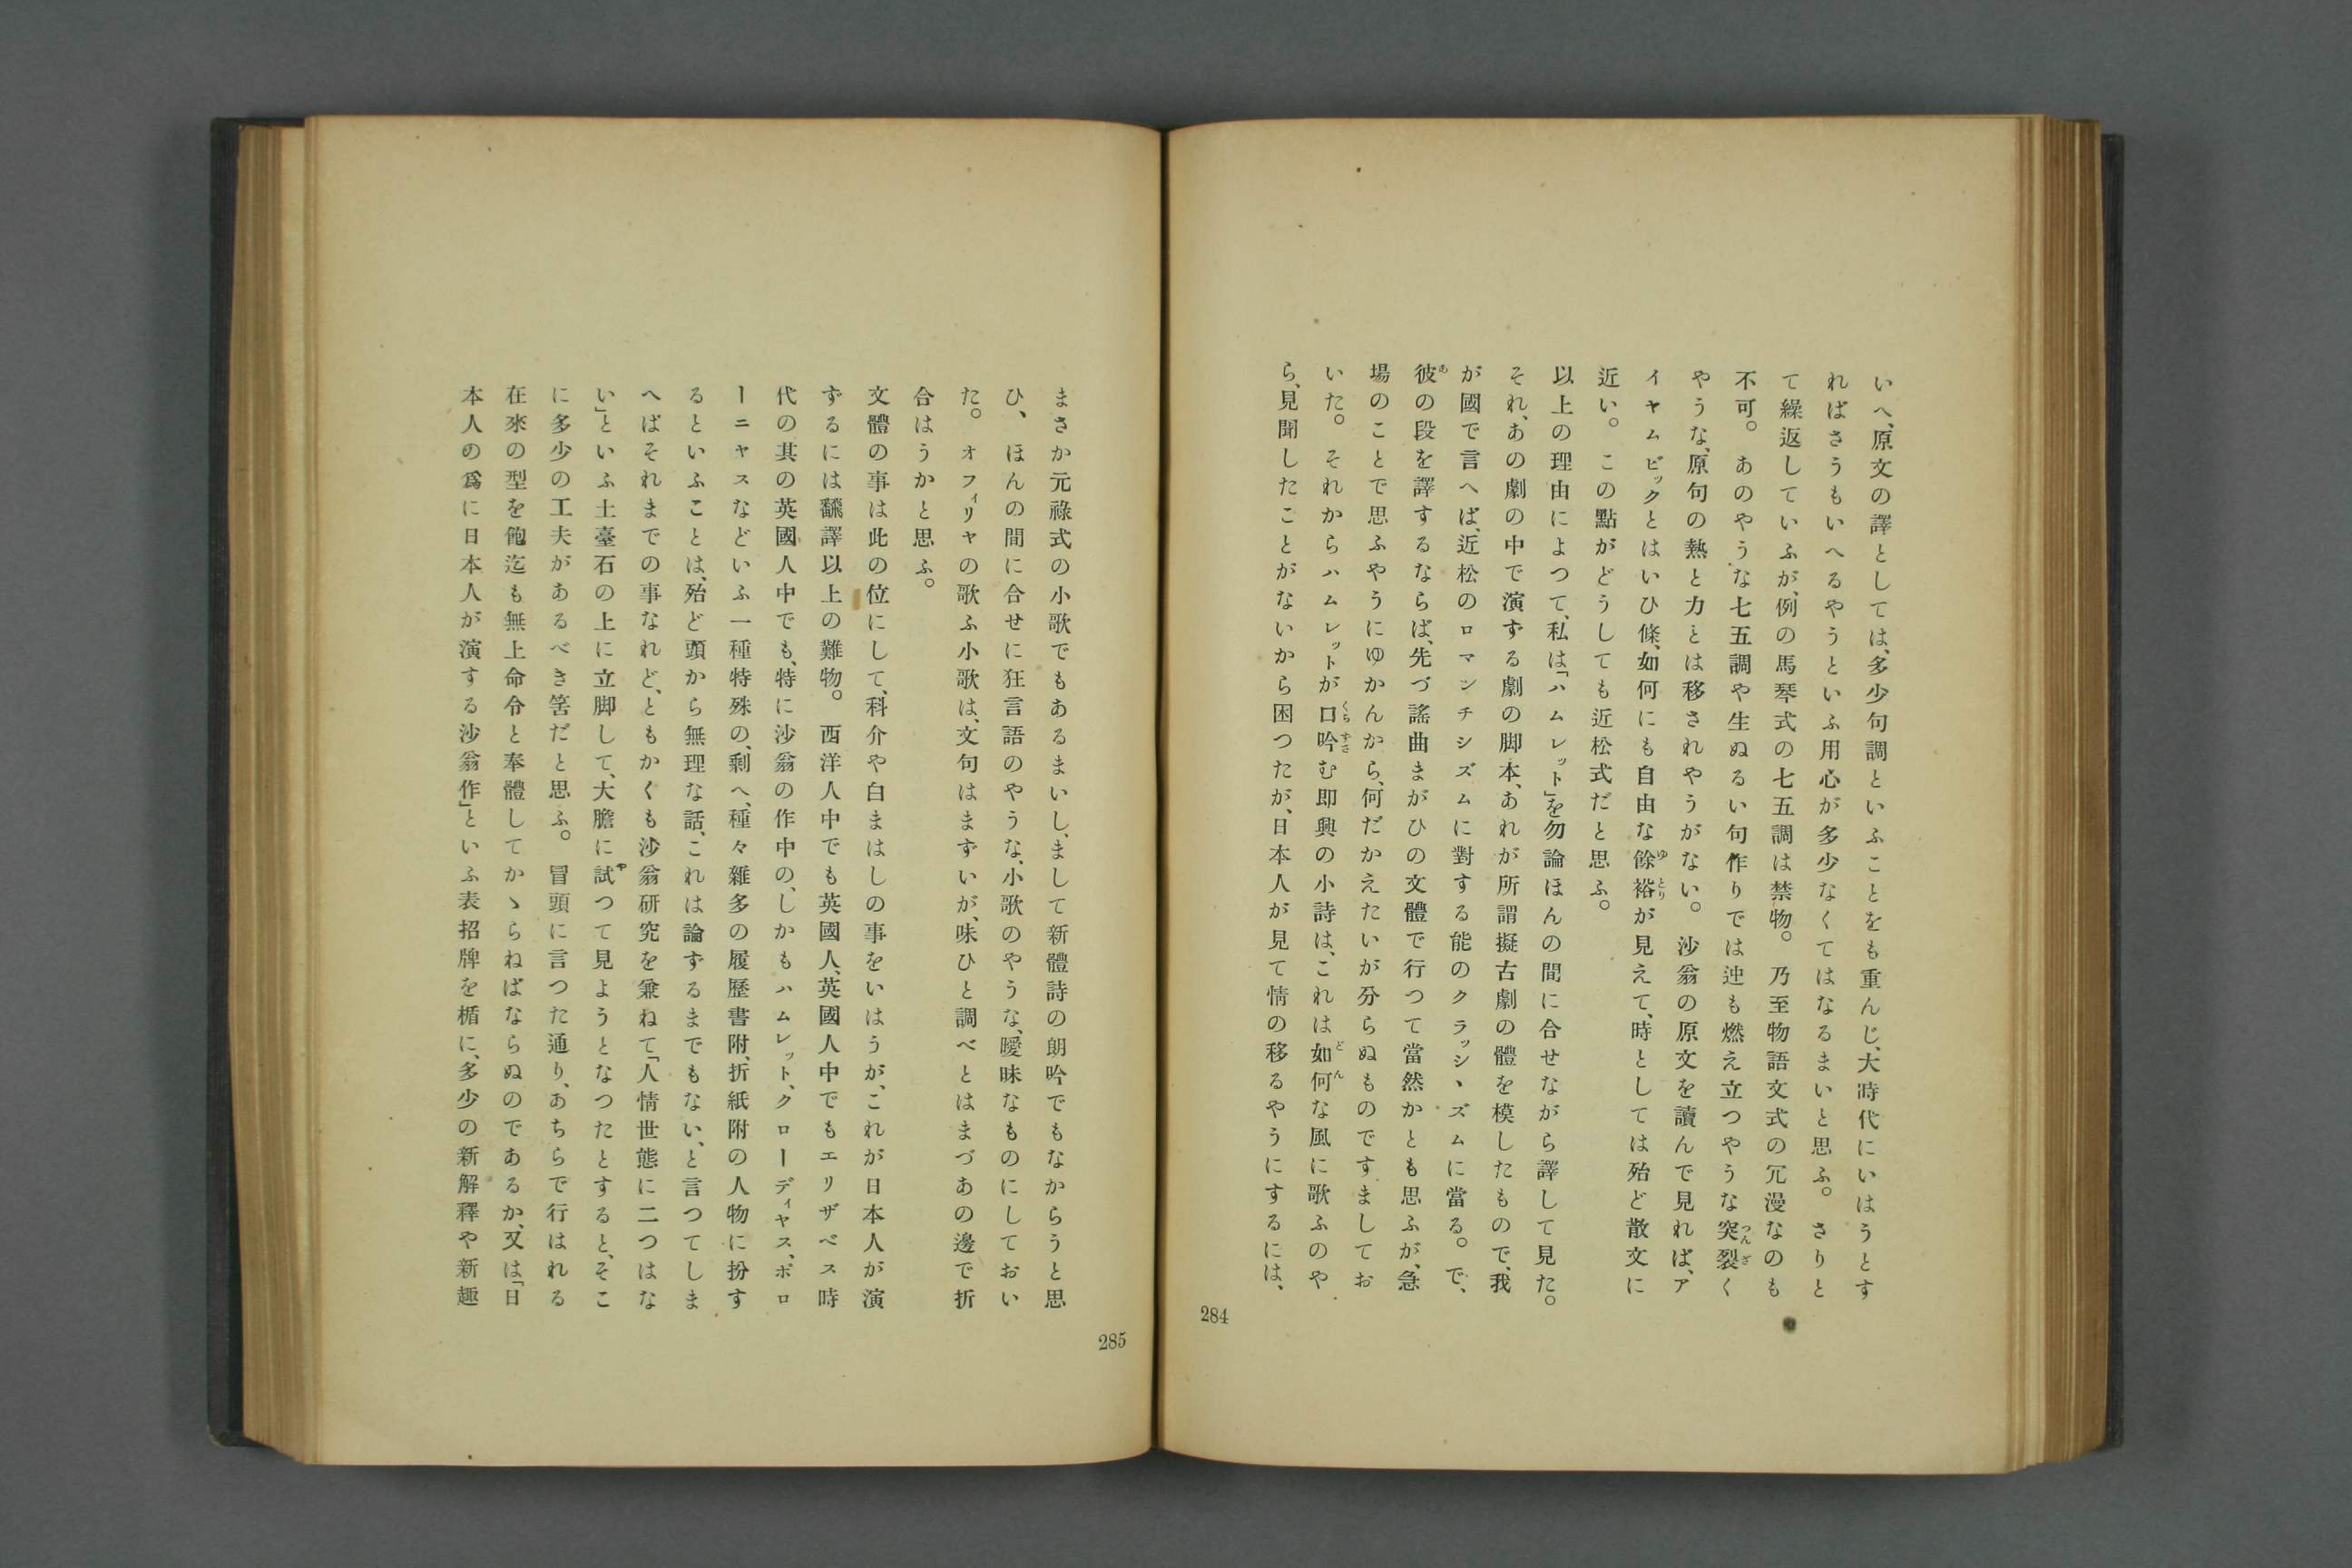 いへ、原文の譯としては、多少句調といふことをも重んじ、大時代にいはうとす
ればさうもいへるやうといふ用心が多少なくてはなるまいと思ふ。さりと
て繰返していふが、例の馬琴式の七五調は禁物。乃至物語文式の冗漫なのも
不可。あのやうな七五調や生ぬるい句作りでは迚も燃え立つやうな突裂く
やうな、原句の熱と力とは移されやうがない。沙翁の原文を讀んで見れば、ア
イヤムビックとはいひ條、如何にも自由な餘裕が見えて、時としては殆ど散文に
近い。この點がどうしても近松式だと思ふ。
以上の理由によつて、私は「ハムレット」を勿論ほんの間に合せながら譯して見た。
それ、あの劇の中で演ずる劇の脚本、あれが所謂擬古劇の體を模したもので、我
が國で言へば、近松のロマンチシズムに對する能のクラッシヽズムに當る。で、
彼の段を譯するならば、先づ謠曲まがひの文體で行つて當然かとも思ふが、急
場のことで思ふやうにゆかんから、何だかえたいが分らぬものですましてお
いた。それからハムレットが口吟む即興の小詩は、これは如何な風に歌ふのや
ら、見聞したことがないから困つたが、日本人が見て情の移るやうにするには、
284
まさか元祿式の小歌でもあるまいし、まして新體詩の朗吟でもなからうと思
ひ、ほんの間に合せに狂言語のやうな、小歌のやうな、曖昧なものにしておい
た。オフィリヤの歌ふ小歌は、文句はまずいが、味ひと調べとはまづあの邊で折
合はうかと思ふ。
文體の事は此の位にして、科介や白まはしの事をいはうが、これが日本人が演
ずるには飜譯以上の難物。西洋人中でも英國人、英國人中でもエリザベス時
代の其の英國人中でも、特に沙翁の作中の、しかもハムレット、クローディヤス、ポロ
ーニヤスなどいふ一種特殊の、剩へ、種々雜多の履歷書附、折紙附の人物に扮す
るといふことは、殆ど頭から無理な話、これは論ずるまでもない、と言つてしま
へばそれまでの事なれど、ともかくも沙翁研究を兼ねて「人情世態に二つはな
い」といふ土臺石の上に立脚して、大膽に試つて見ようとなつたとすると、そこ
に多少の工夫があるべき筈だと思ふ。冒頭に言つた通り、あちらで行はれる
在來の型を飽迄も無上命令と奉體してかゝらねばならぬのであるか、又は「日
本人の爲に日本人が演する沙翁作」といふ表招牌を楯に、多少の新解釋や新趣
285